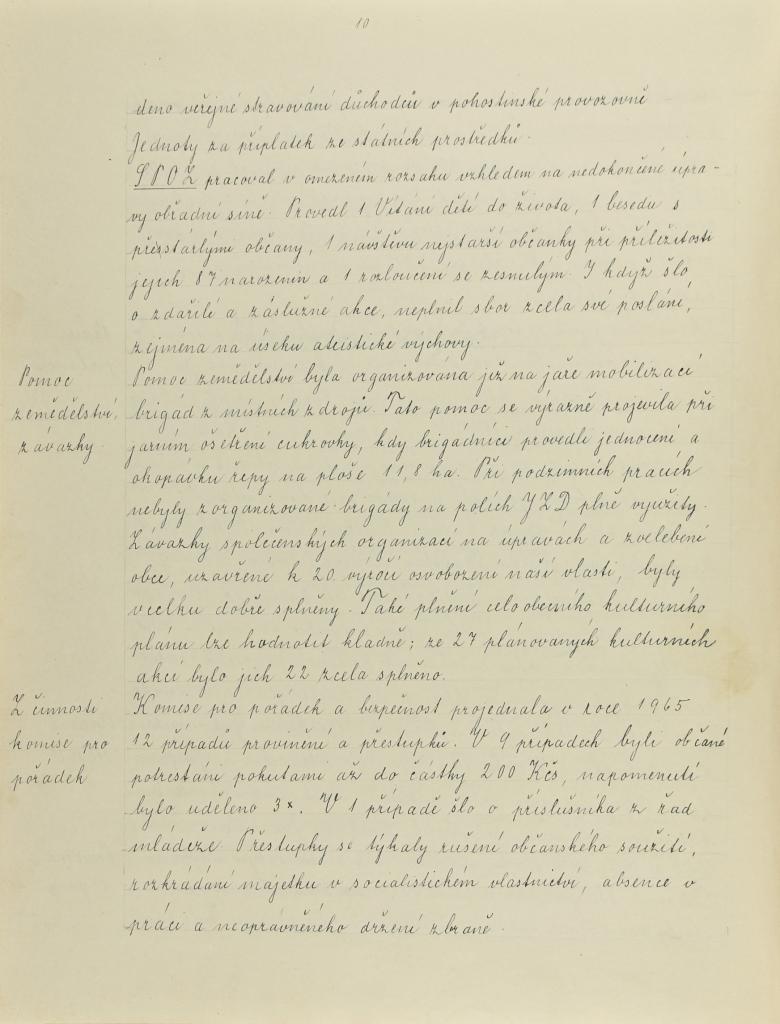 10
deno veřejné stravování důchodců v pohostinské provozovně
Jednoty za příplatek ze státních prostředků.
SPOZ pracoval v omezeném rozsahu vzhledem na nedokončené úpra-
vy obřadní síně. Provedl 1 Vítání dětí do života, 1 besedu s
přestárlými občany, 1 návštěvu nejstarší občanky při příležitosti
jejich 87 narozenin a 1 rozloučení se zesnulým. I když šlo
o zdařilé a záslužné akce, neplnil sbor zcela své poslání,
zejména na úseku ateistické výchovy.
Pomoc
zemědělství,
závazky.
Pomoc zemědělství byla organizována již na jaře mobilizací
brigád z místních zdrojů. Tato pomoc se výrazně projevila při
jarním ošetření cukrovky, kdy brigádníci provedli jednocení a
okopávku řepy na ploše 11,8 ha. Při podzimních pracích
nebyly zorganizované brigády na polích JZD plně využity.
Závazky společenských organizací na úpravách a zvelebení
obce, uzavřené k 20. výročí osvobození naší vlasti, byly
vcelku dobře splněny. Také plnění celoobecního kulturního
plánu lze hodnotit kladně; ze 27 plánovaných kulturních
akcí bylo jich 22 zcela splněno.
Z činnosti
komise pro
pořádek
Komise pro pořádek a bezpečnost projednala v roce 1965
12 případů provinění a přestupků. V 9 případech byli občané
potrestáni pokutami až do částky 200 Kčs, napomenutí
bylo uděleno 3x. V 1 případě šlo o příslušníka z řad
mládeže. Přestupky se týkaly rušení občanského soužití,
rozkrádání majetku v socialistickém vlastnictví, absence v
práci a neoprávněného držení zbraně.